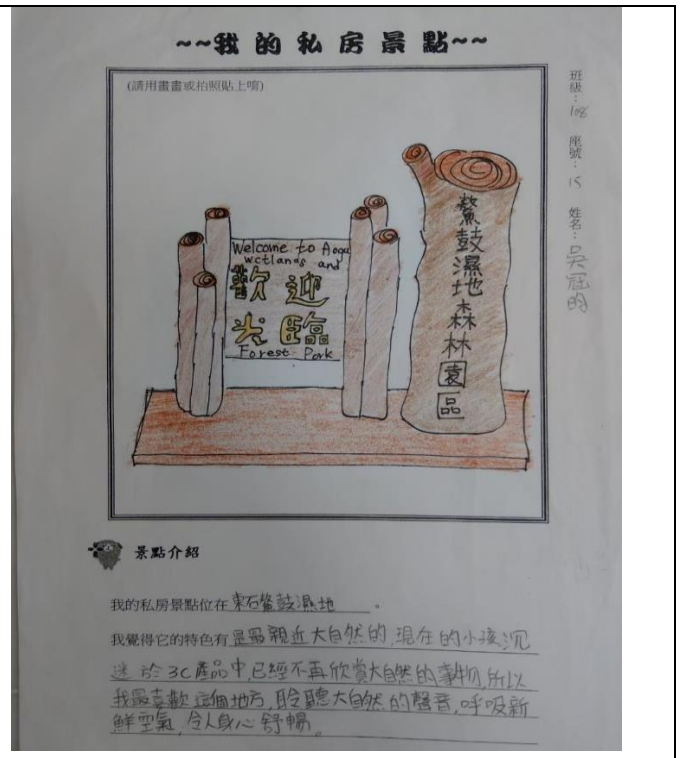 ~~我的私房景點~~
(請用畫畫或拍照貼上唷)
班級：108 座號：15 姓名：吳冠昀
Welcome to Aogu
wetlands and
歡迎
光臨
Forest Park
鰲鼓濕地森林園區
景點介紹
我的私房景點位在東石鰲鼓濕地。
我覺得它的特色有是最親近大自然的,現在的小孩沉
迷於3C產品中,已經不再欣賞大自然的事物,所以
我最喜歡這個地方,聆聽大自然的聲音,呼吸新
鮮空氣,令人身心舒暢。